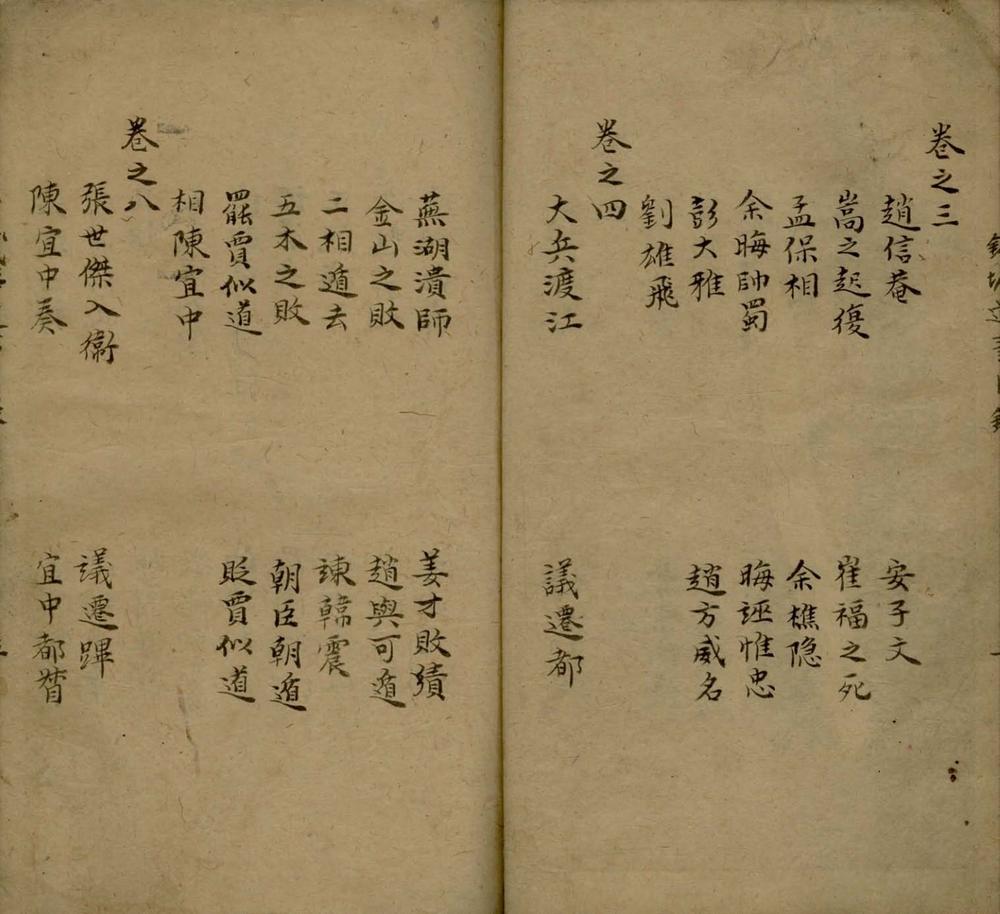 卷之三
趙信菴 安子文
嵩之起復 崔福之死
孟保相 余樵隐
余晦帥蜀 晦誣惟忠
彭大雅 趙方威名
劉雄飛
卷之四
大兵渡江 議遷都
蕪湖潰師 姜才敗績
金山之敗 趙與可遁
二相遁去 誅韓震
五木之敗 朝臣朝遁
罷賈似道 貶賈似道
相陳宜中
卷之八
張世傑入衛 議遷蹕
陳宜中奏 宜中都督